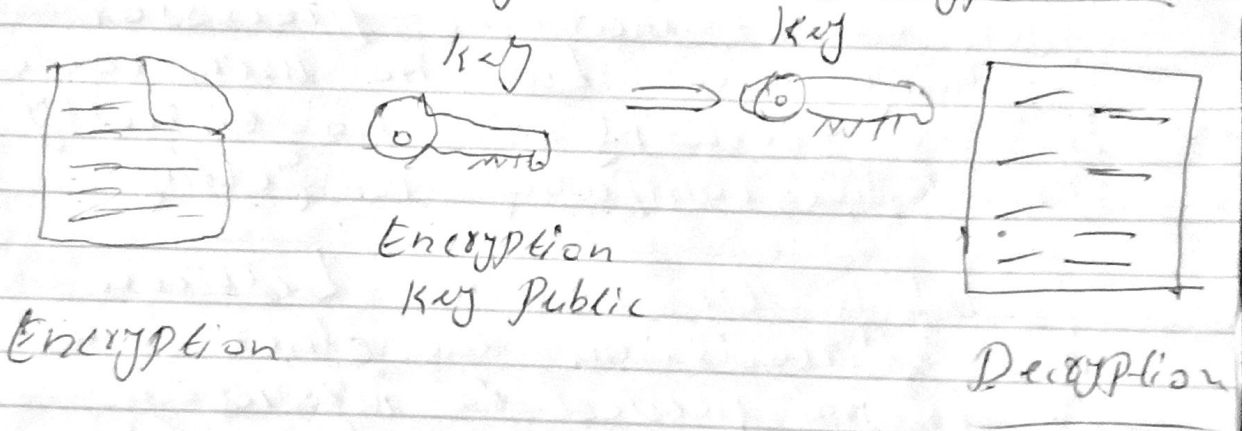 Key
Key
Encryption
Key Public
Encryption
Decryption